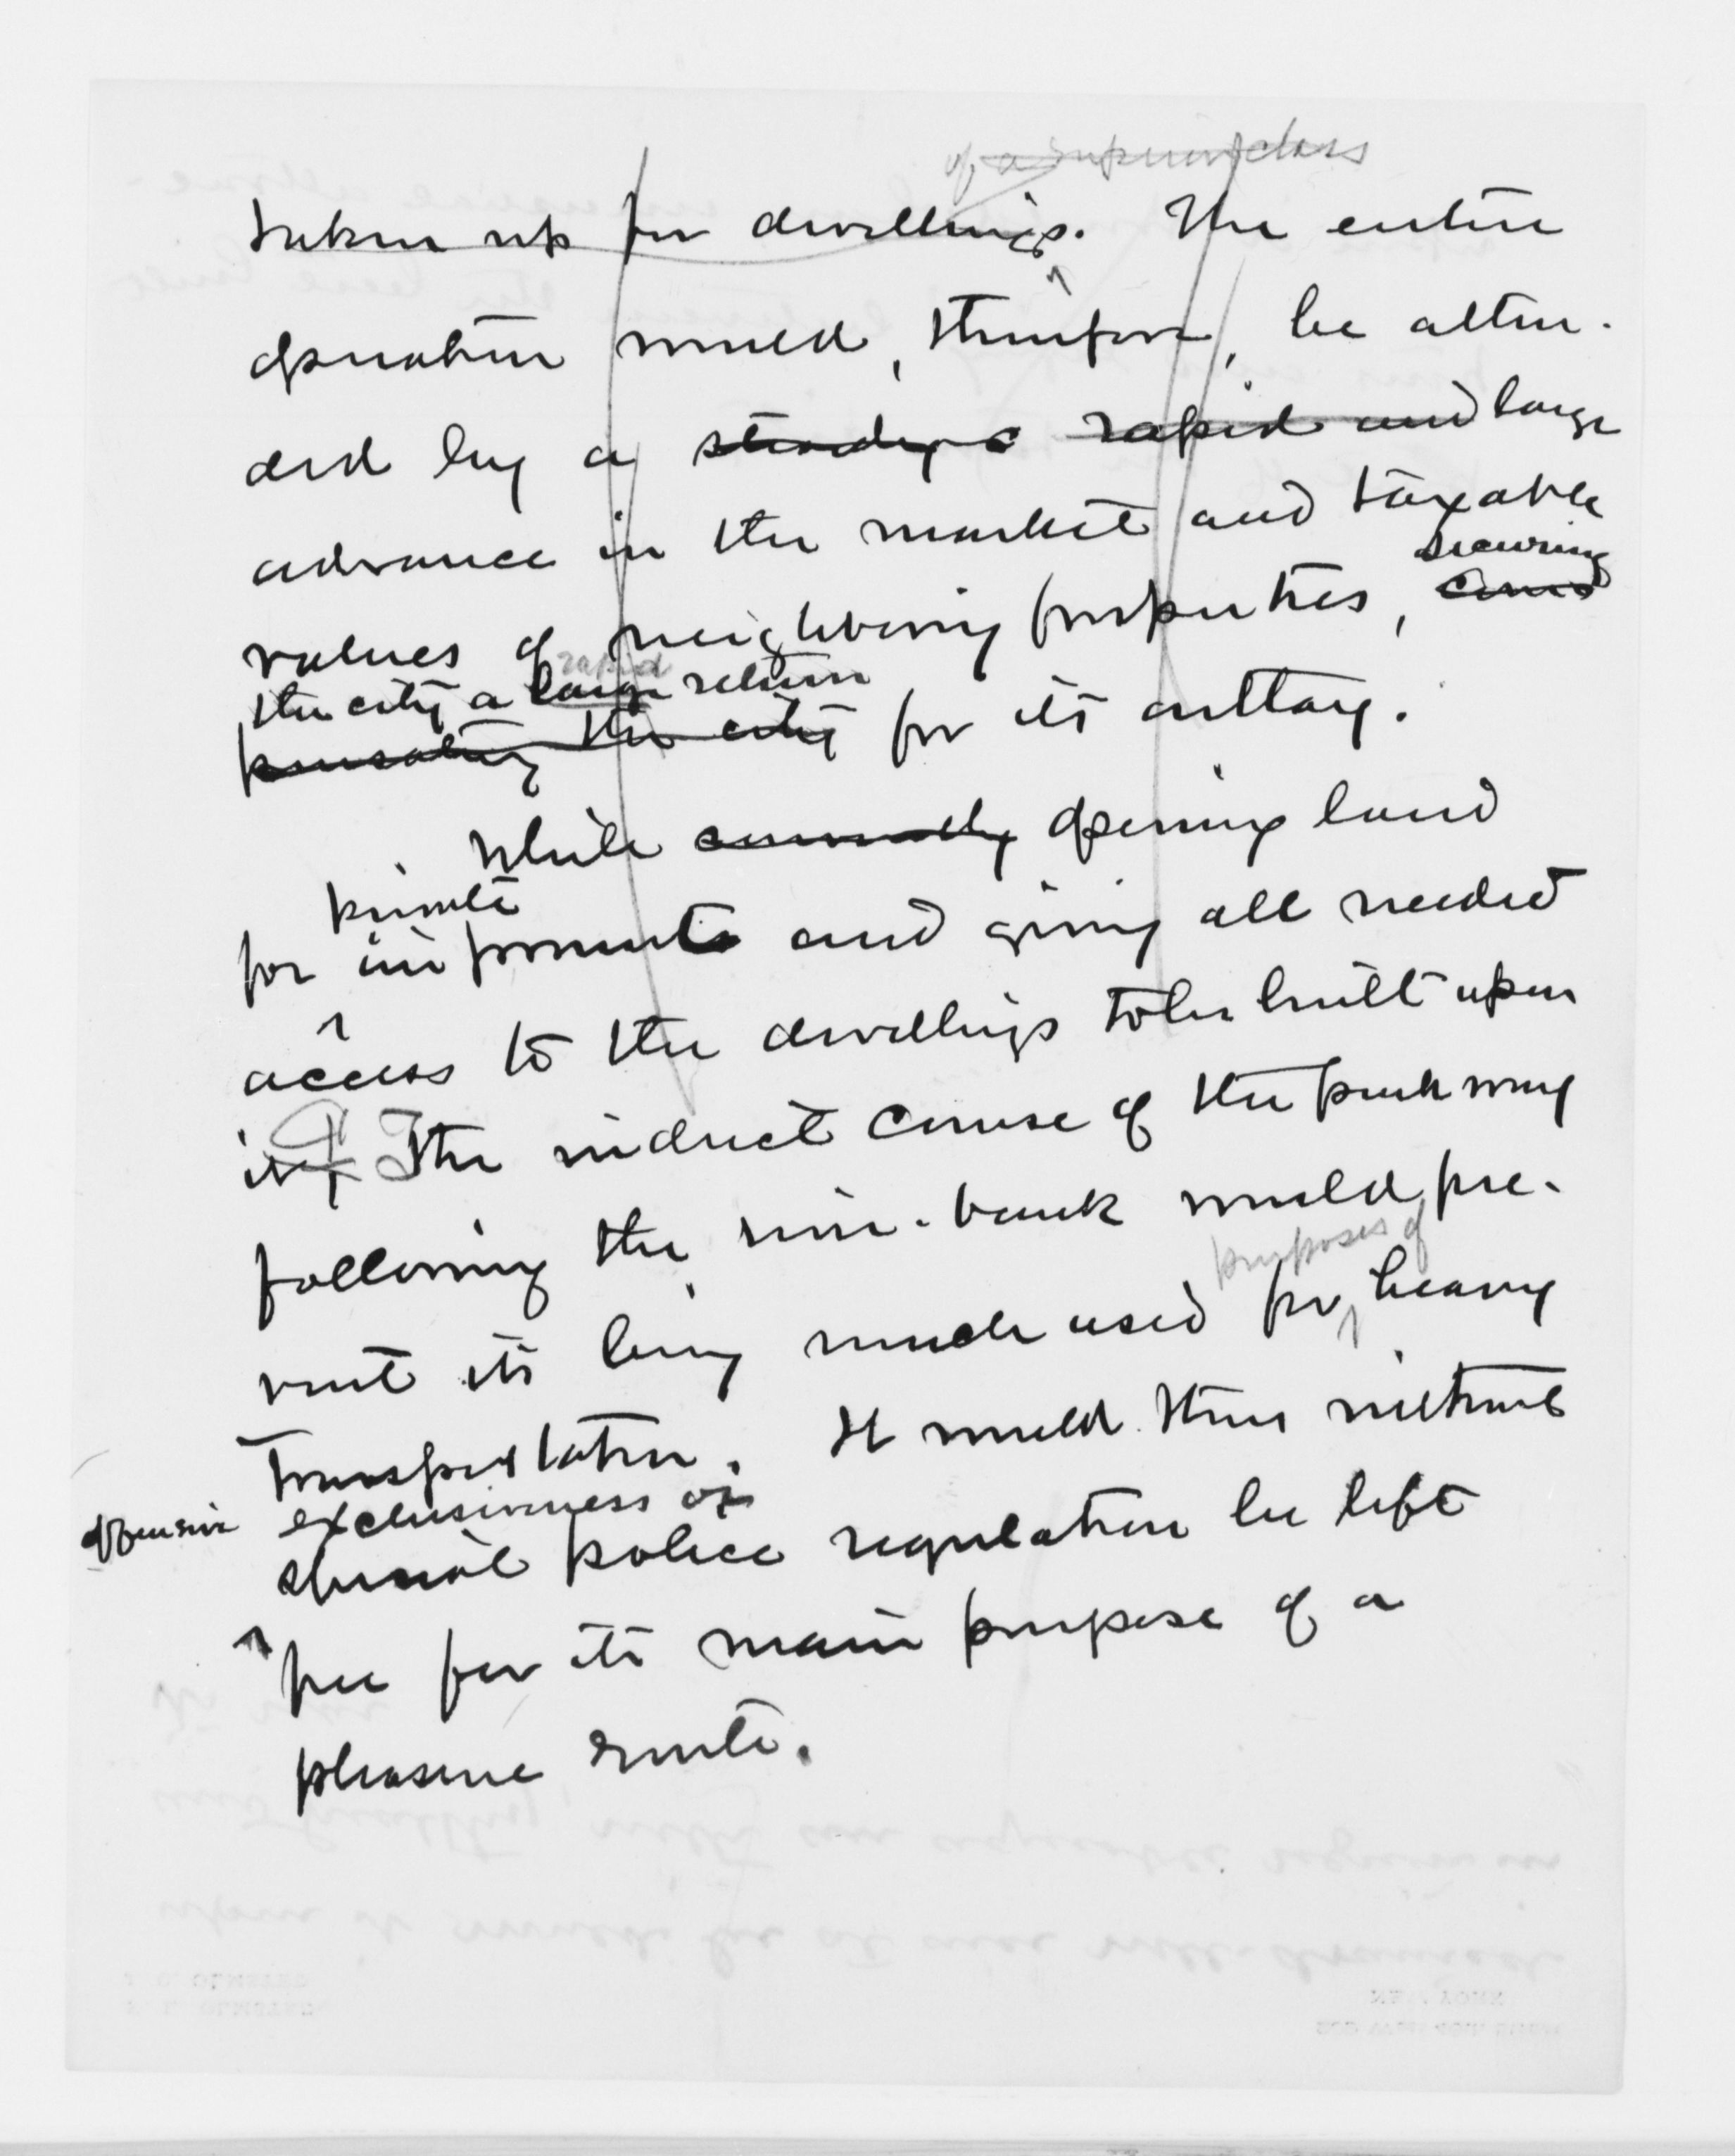 of a superior class
taken up for dwellings. The entire
operation would, therefore, be atten-
ded by a steady & rapid and large
advance in the market and taxable
securing
values of neighboring properties, com
rapid
the city a large return
pensating the city for its outlay.
While opening land
private
for improvements and giving all needed
access to the dwellings to be built upon
it, The indirect course of the parkway
following the river-bank would pre-
purposes of
vent its being much used for heavy
transportation. It would thus without
offensive exclusiveness or
special police regulation be left
free for its main purpose of a
pleasure route.